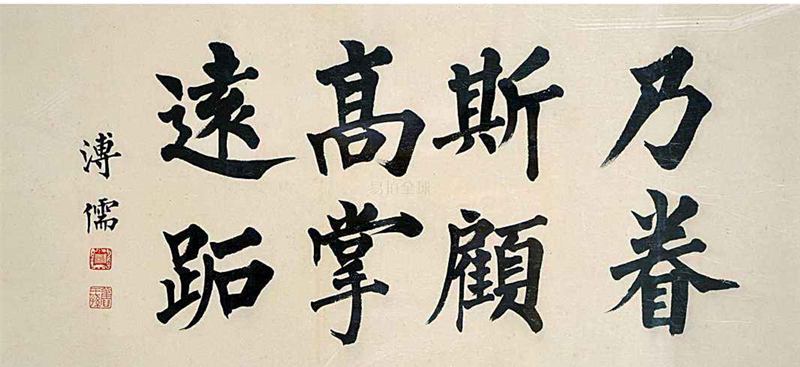 乃眷
斯顧
高掌
遠跖
溥儒
易拍全球